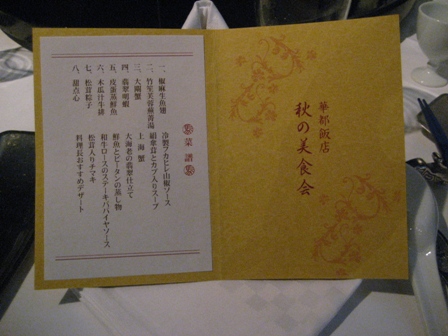 華都飯店
秋の美食会
菜譜
一、椒麻生魚翅
冷製フカヒレ山椒ソース
二、竹笙芙蓉燕黄湯
絹笠茸とカブ入りスープ
三、大閘蟹
上海蟹
四、翡翠明蝦
大海老の翡翠仕立て
五、皮蛋蒸鮮魚
鮮魚とピータンの蒸し物
六、木瓜汁牛排
和牛ロースのステーキパパイヤソース
七、松茸粽子
松茸入りチマキ
八、甜点心
料理長おすすめデザート